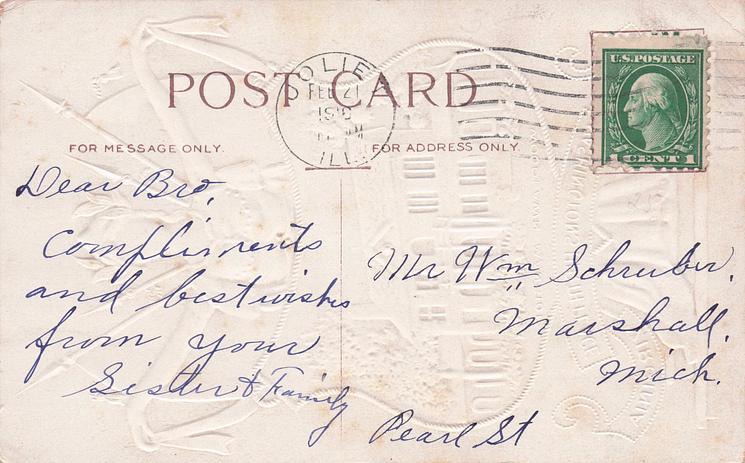 POST CARD
JOLIET
FEB 21
ILL.
U.S. POSTAGE
1 CENT 1
FOR MESSAGE ONLY.
FOR ADDRESS ONLY.
Dear Bro,
Compliments
and best wishes
from your
Sister & Family
Mr Wm Schreiber.
Marshall.
Mich.
Pearl St